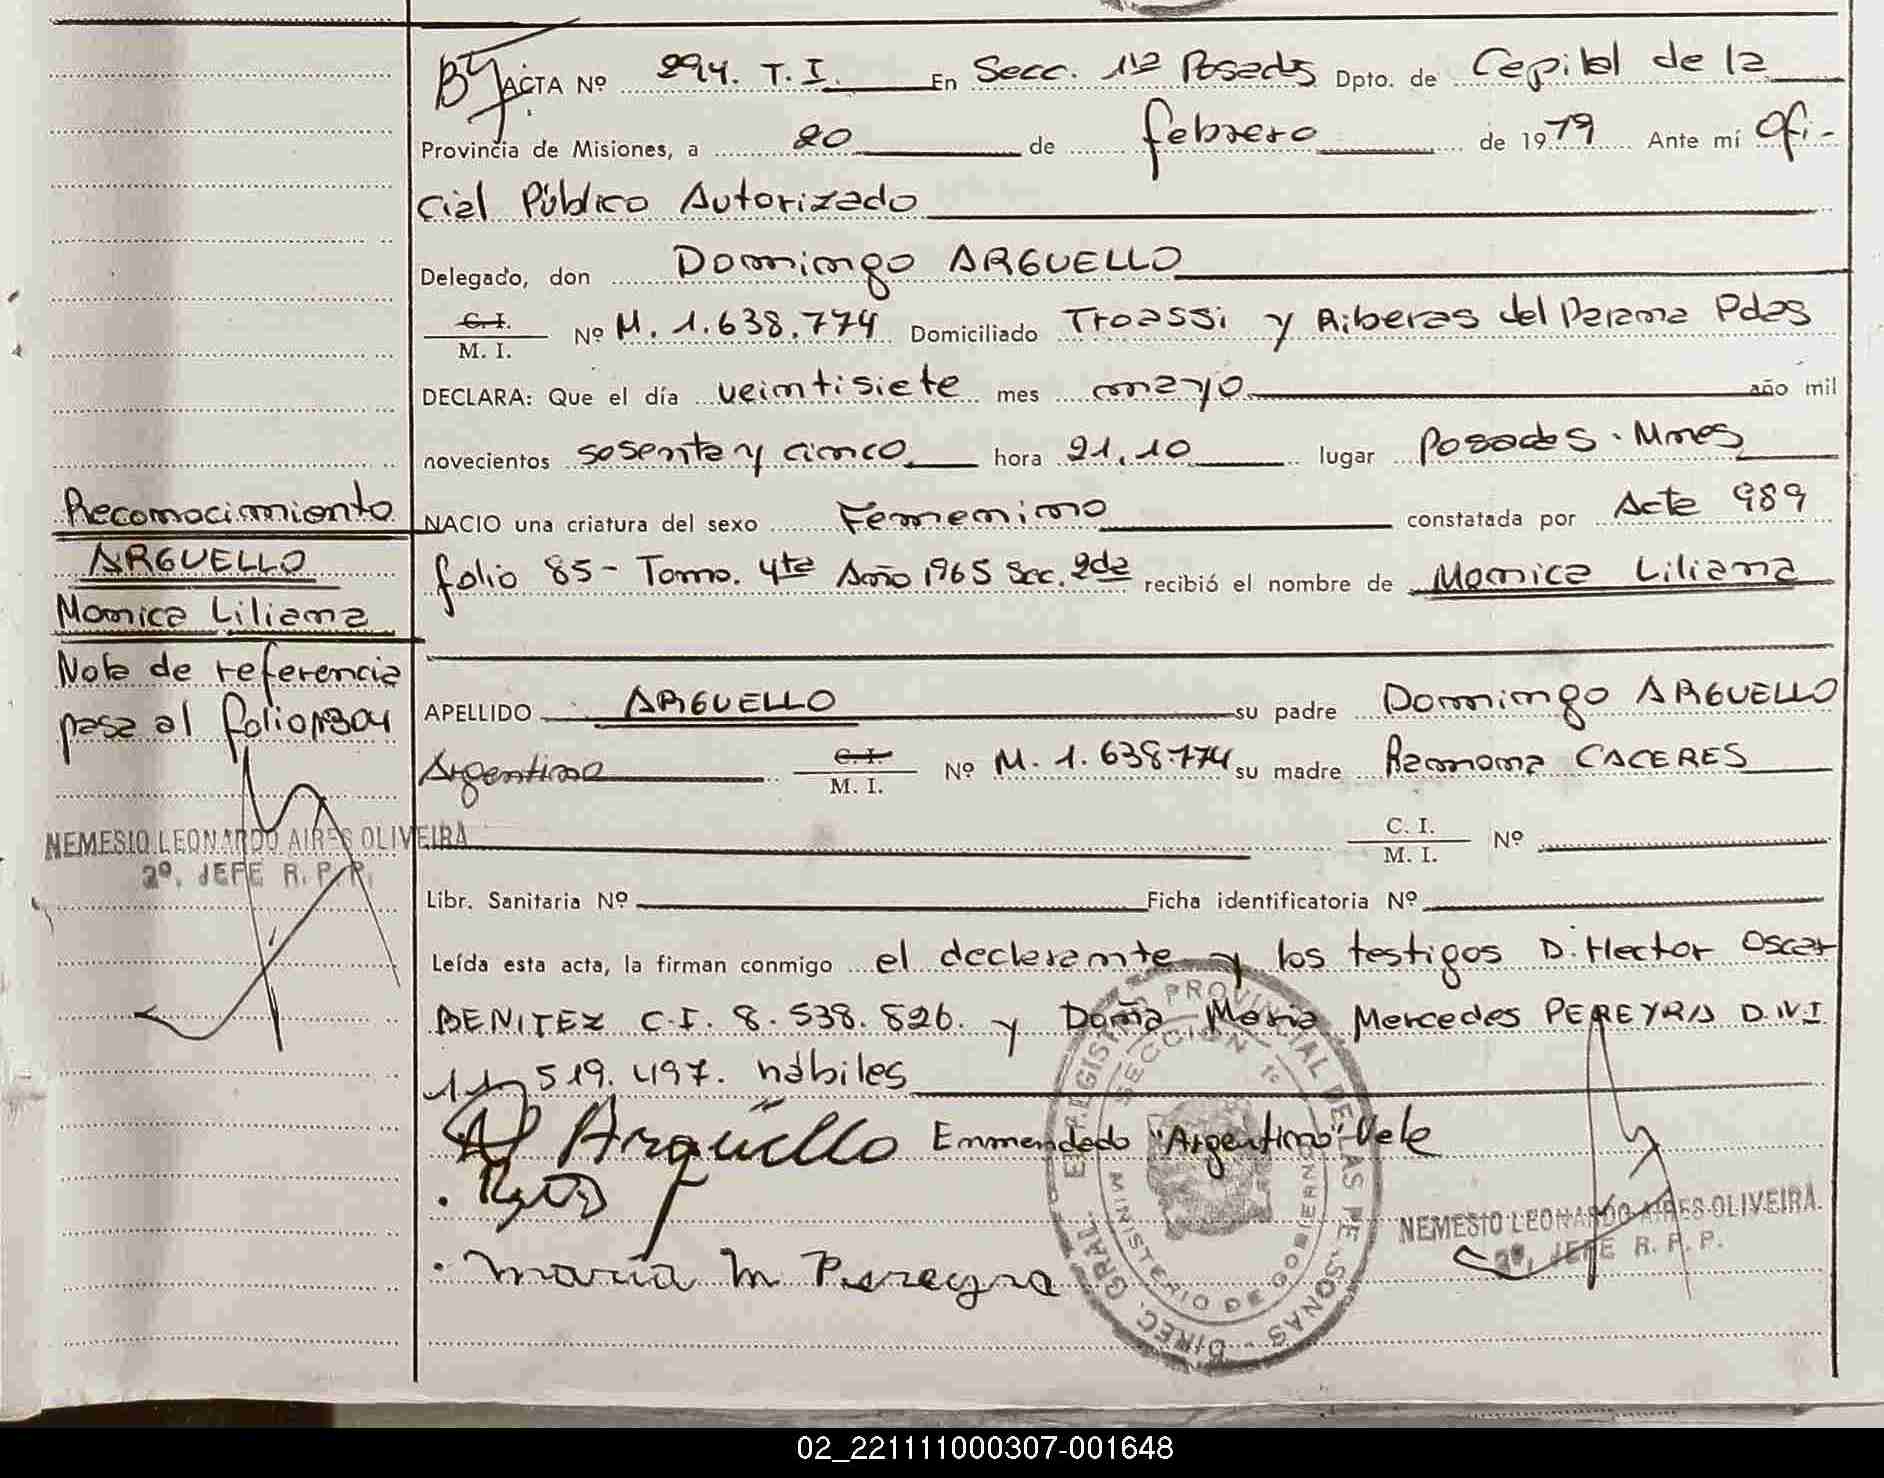 ACTA Nº 294. T. I. En Secc. 1ra Posadas Dpto. de Capital de la
Provincia de Misiones, a 20 de febrero de 1979 Ante mí Ofi-
cial Público Autorizado
Delegado, don Domingo ARGUELLO
C. I. / M. I. Nº M. 1.638.774 Domiciliado Troassi y Riberas del Parana Pdas
DECLARA: Que el día veintisiete mes mayo año mil
novecientos sesenta y cinco hora 21,10 lugar Posadas - Mnes
NACIO una criatura del sexo Femenino constatada por Acta 989
folio 85 - Tomo. 4to Año 1965 Sec. 2da recibió el nombre de Monica Liliana
APELLIDO ARGUELLO su padre Domingo ARGUELLO
Argentino C. I. / M. I. Nº M. 1. 638.774 su madre Ramona CACERES
C. I. / M. I. Nº
Libr. Sanitaria Nº Ficha identificatoria Nº
Leída esta acta, la firman conmigo el declarante y los testigos D. Hector Oscar
BENITEZ C.I. 8. 538. 826. y Doña Maria Mercedes PEREYRA D.N.I
11. 519. 497. hábiles
Argüello Enmendado "Argentino" Vale
Maria M Pereyra
Reconocimiento
ARGUELLO
Monica Liliana
Nota de referencia
pasa al folio 304
NEMESIO LEONARDO AIRES OLIVEIRA
2º. JEFE R. P. P.
DIREC. GRAL. REGISTRO PROVINCIAL DE LAS PERSONAS
SECCION 1º
MINISTERIO DE GOBIERNO
NEMESIO LEONARDO AIRES OLIVEIRA
2º. JEFE R. P. P.
02_221111000307-001648